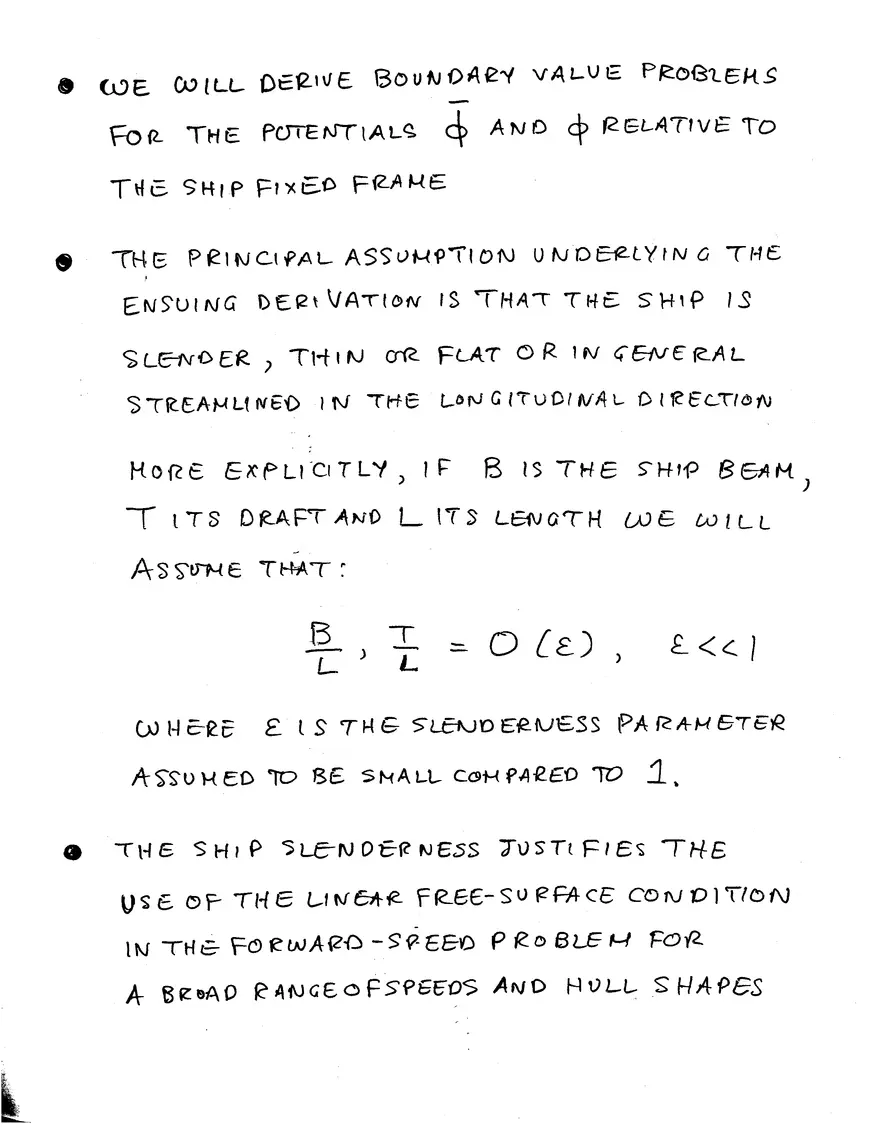 • WE WILL DERIVE BOUNDARY VALUE PROBLEMS
FOR THE POTENTIALS ϕ̄ AND ϕ RELATIVE TO
THE SHIP FIXED FRAME
• THE PRINCIPAL ASSUMPTION UNDERLYING THE
ENSUING DERIVATION IS THAT THE SHIP IS
SLENDER, THIN OR FLAT OR IN GENERAL
STREAMLINED IN THE LONGITUDINAL DIRECTION
MORE EXPLICITLY, IF B IS THE SHIP BEAM,
T ITS DRAFT AND L ITS LENGTH WE WILL
ASSUME THAT:
B/L, T/L = O(ε), ε<<1
WHERE ε IS THE SLENDERNESS PARAMETER
ASSUMED TO BE SMALL COMPARED TO 1.
• THE SHIP SLENDERNESS JUSTIFIES THE
USE OF THE LINEAR FREE-SURFACE CONDITION
IN THE FORWARD-SPEED PROBLEM FOR
A BROAD RANGE OF SPEEDS AND HULL SHAPES